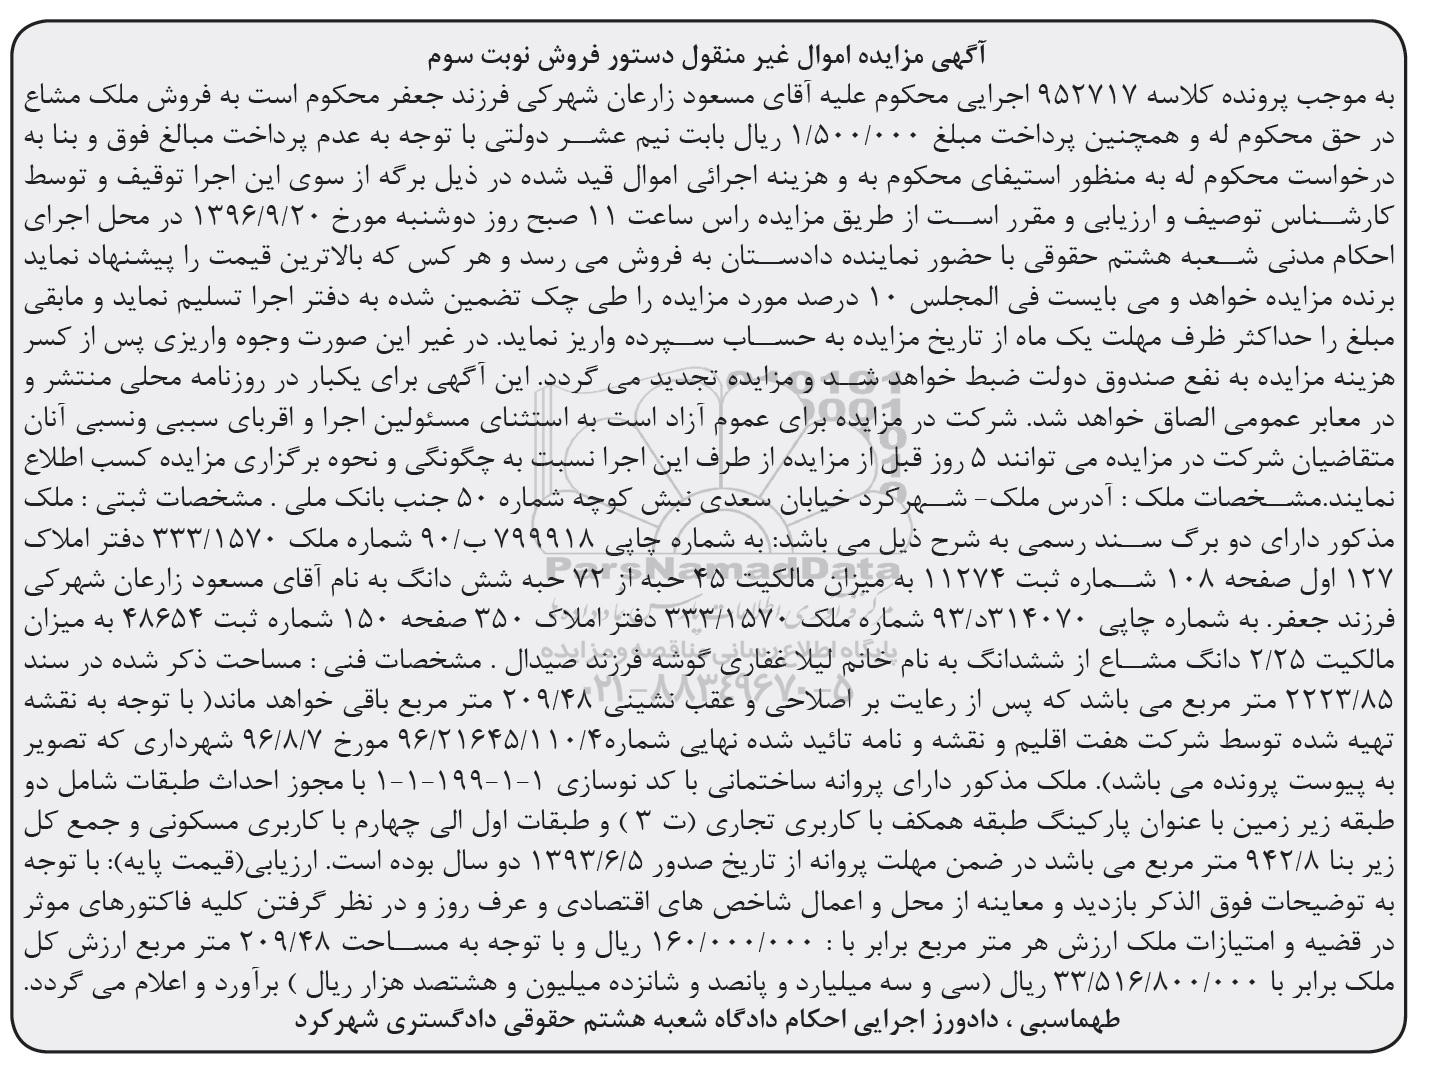 آگهی مزایده اموال غیر منقول دستور فروش نوبت سوم
به موجب پرونده کلاسه ۹۵۲۷۱۷ اجرایی محکوم علیه آقای مسعود زارعان شهرکی فرزند جعفر محکوم است به فروش ملک مشاع
در حق محکوم له و همچنین پرداخت مبلغ ۱/۵۰۰/۰۰۰ ریال بابت نیم عشر دولتی با توجه به عدم پرداخت مبالغ فوق و بنا به
درخواست محکوم له به منظور استیفای محکوم به و هزینه اجرائی اموال قید شده در ذیل برگه از سوی این اجرا توقیف و توسط
کارشناس توصیف و ارزیابی و مقرر است از طریق مزایده راس ساعت ۱۱ صبح روز دوشنبه مورخ ۱۳۹۶/۹/۲۰ در محل اجرای
احکام مدنی شعبه هشتم حقوقی با حضور نماینده دادستان به فروش می رسد و هر کس که بالاترین قیمت را پیشنهاد نماید
برنده مزایده خواهد و می بایست فی المجلس ۱۰ درصد مورد مزایده را طی چک تضمین شده به دفتر اجرا تسلیم نماید و مابقی
مبلغ را حداکثر ظرف مهلت یک ماه از تاریخ مزایده به حساب سپرده واریز نماید. در غیر این صورت وجوه واریزی پس از کسر
هزینه مزایده به نفع صندوق دولت ضبط خواهد شد و مزایده تجدید می گردد. این آگهی برای یکبار در روزنامه محلی منتشر و
در معابر عمومی الصاق خواهد شد. شرکت در مزایده برای عموم آزاد است به استثنای مسئولین اجرا و اقربای سببی ونسبی آنان
متقاضیان شرکت در مزایده می توانند ۵ روز قبل از مزایده از طرف این اجرا نسبت به چگونگی و نحوه برگزاری مزایده کسب اطلاع
نمایند.مشخصات ملک : آدرس ملک- شهرکرد خیابان سعدی نبش کوچه شماره ۵۰ جنب بانک ملی . مشخصات ثبتی : ملک
مذکور دارای دو برگ سند رسمی به شرح ذیل می باشد: به شماره چاپی ۷۹۹۹۱۸ ب/۹۰ شماره ملک ۳۳۳/۱۵۷۰ دفتر املاک
۱۲۷ اول صفحه ۱۰۸ شماره ثبت ۱۱۲۷۴ به میزان مالکیت ۴۵ حبه از ۷۲ حبه شش دانگ به نام آقای مسعود زارعان شهرکی
فرزند جعفر. به شماره چاپی ۳۱۴۰۷۰د/۹۳ شماره ملک ۳۳۳/۱۵۷۰ دفتر املاک ۳۵۰ صفحه ۱۵۰ شماره ثبت ۴۸۶۵۴ به میزان
مالکیت ۲/۲۵ دانگ مشاع از ششدانگ به نام خانم لیلا غفاری گوشه فرزند صیدال . مشخصات فنی : مساحت ذکر شده در سند
۲۲۲۳/۸۵ متر مربع می باشد که پس از رعایت بر اصلاحی و عقب نشینی ۲۰۹/۴۸ متر مربع باقی خواهد ماند( با توجه به نقشه
تهیه شده توسط شرکت هفت اقلیم و نقشه و نامه تائید شده نهایی شماره۹۶/۲۱۶۴۵/۱۱۰/۴ مورخ ۹۶/۸/۷ شهرداری که تصویر
به پیوست پرونده می باشد). ملک مذکور دارای پروانه ساختمانی با کد نوسازی ۱-۱-۱۹۹-۱-۱ با مجوز احداث طبقات شامل دو
طبقه زیر زمین با عنوان پارکینگ طبقه همکف با کاربری تجاری (ت ۳ ) و طبقات اول الی چهارم با کاربری مسکونی و جمع کل
زیر بنا ۹۴۲/۸ متر مربع می باشد در ضمن مهلت پروانه از تاریخ صدور ۱۳۹۳/۶/۵ دو سال بوده است. ارزیابی(قیمت پایه): با توجه
به توضیحات فوق الذکر بازدید و معاینه از محل و اعمال شاخص های اقتصادی و عرف روز و در نظر گرفتن کلیه فاکتورهای موثر
در قضیه و امتیازات ملک ارزش هر متر مربع برابر با : ۱۶۰/۰۰۰/۰۰۰ ریال و با توجه به مساحت ۲۰۹/۴۸ متر مربع ارزش کل
ملک برابر با ۳۳/۵۱۶/۸۰۰/۰۰۰ ریال (سی و سه میلیارد و پانصد و شانزده میلیون و هشتصد هزار ریال ) برآورد و اعلام می گردد.
طهماسبی ، دادورز اجرایی احکام دادگاه شعبه هشتم حقوقی دادگستری شهرکرد
ParsNamadData
پایگاه اطلاع رسانی مناقصه و مزایده
۰۲۱-۸۸۳۴۹۶۷۰-۵